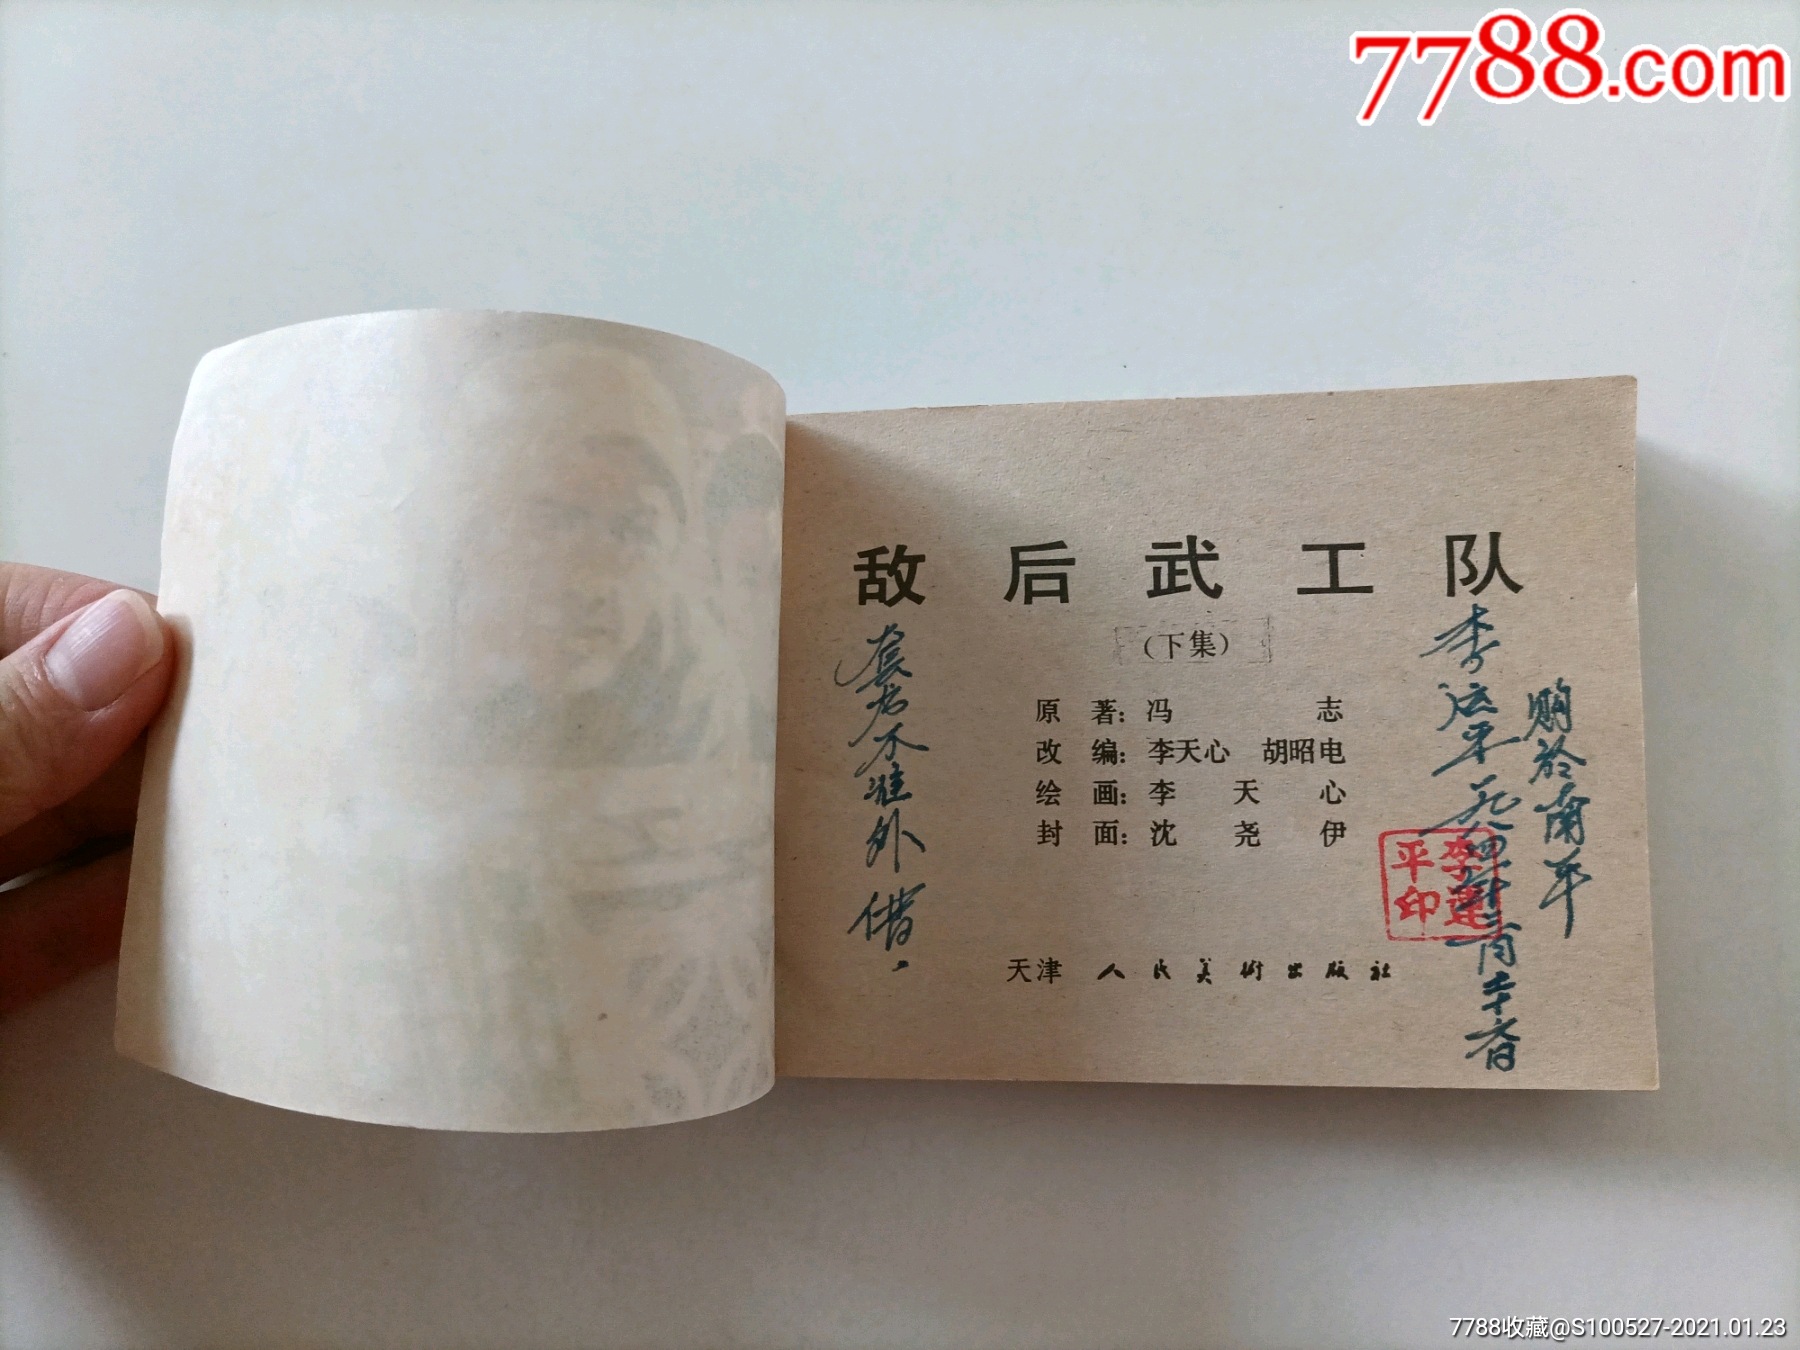 7788.com
敌后武工队
(下集)
原 著：冯 志
改 编：李天心 胡昭电
绘 画：李 天 心
封 面：沈 尧 伊
天津 人民美術出版社
套书不准外借.
李建平 一九八四年二月二十六日
购於南平
李建平印
7788收藏@S100527-2021.01.23